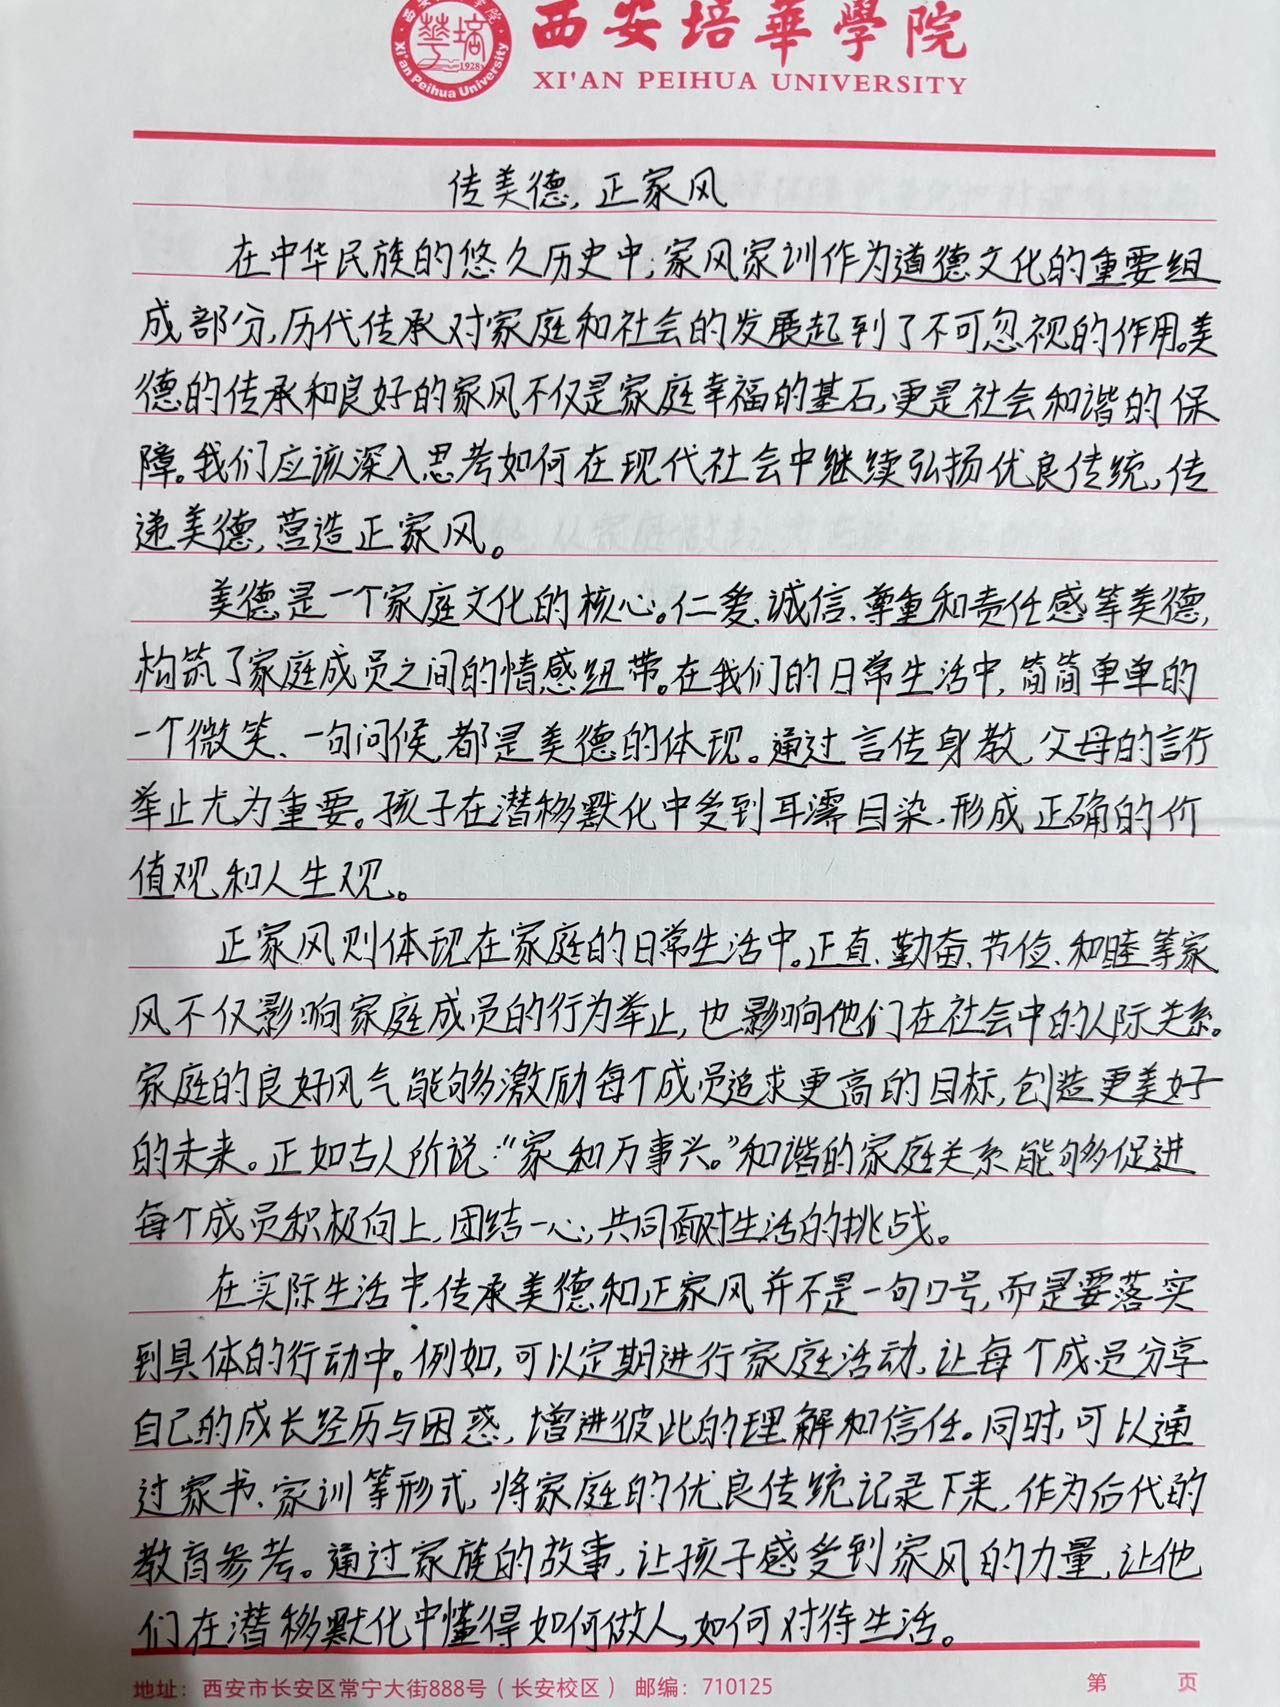 西安培華學院
XI'AN PEIHUA UNIVERSITY
西安培华学院
华培
1928
Xi'an Peihua University
传美德,正家风
在中华民族的悠久历史中,家风家训作为道德文化的重要组
成部分,历代传承对家庭和社会的发展起到了不可忽视的作用。美
德的传承和良好的家风不仅是家庭幸福的基石,更是社会和谐的保
障。我们应该深入思考如何在现代社会中继续弘扬优良传统,传
递美德,营造正家风。
美德是一个家庭文化的核心。仁爱、诚信、尊重和责任感等美德,
构筑了家庭成员之间的情感纽带。在我们的日常生活中,简简单单的
一个微笑、一句问候,都是美德的体现。通过言传身教,父母的言行
举止尤为重要。孩子在潜移默化中受到耳濡目染,形成正确的价
值观和人生观。
正家风则体现在家庭的日常生活中。正直、勤奋、节俭、和睦等家
风不仅影响家庭成员的行为举止,也影响他们在社会中的人际关系。
家庭的良好风气能够激励每个成员追求更高的目标,创造更美好
的未来。正如古人所说:“家和万事兴。”和谐的家庭关系能够促进
每个成员积极向上,团结一心,共同面对生活的挑战。
在实际生活中,传承美德和正家风并不是一句口号,而是要落实
到具体的行动中。例如,可以定期进行家庭活动,让每个成员分享
自己的成长经历与困惑,增进彼此的理解和信任。同时,可以通
过家书、家训等形式,将家庭的优良传统记录下来,作为后代的
教育参考。通过家族的故事,让孩子感受到家风的力量,让他
们在潜移默化中懂得如何做人,如何对待生活。
地址:西安市长安区常宁大街888号(长安校区) 邮编:710125 第 页